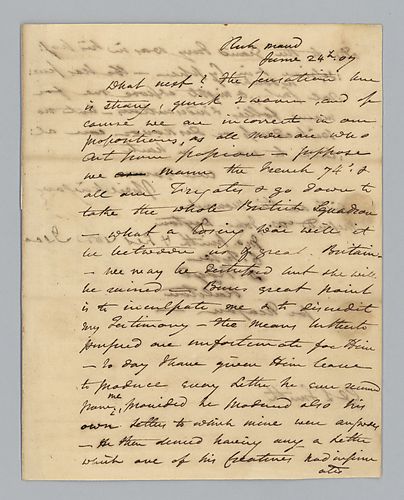 Richmond
June 24th. 07
What next? The sensation here
is strong, quick & warm, and of
course we are incorrect in our
propositions, as all men are who
act from passion – suppose
we mann the French 74's &
all our Frigates & go down to
take the whole British Squadron
– what a losing War will it
be between us & great Britain
– we may be distressed but she will
be ruined – Burrs great point
is to inculpate me & to discredit
my Testimony – the means hitherto
pursued are unfortunate for Him
– to day I have given Him leave
to produce every letter he can
from me, provided he produced also his
own letters to which mine were answers
– He then denied having any a letter
which one of his Creatures had